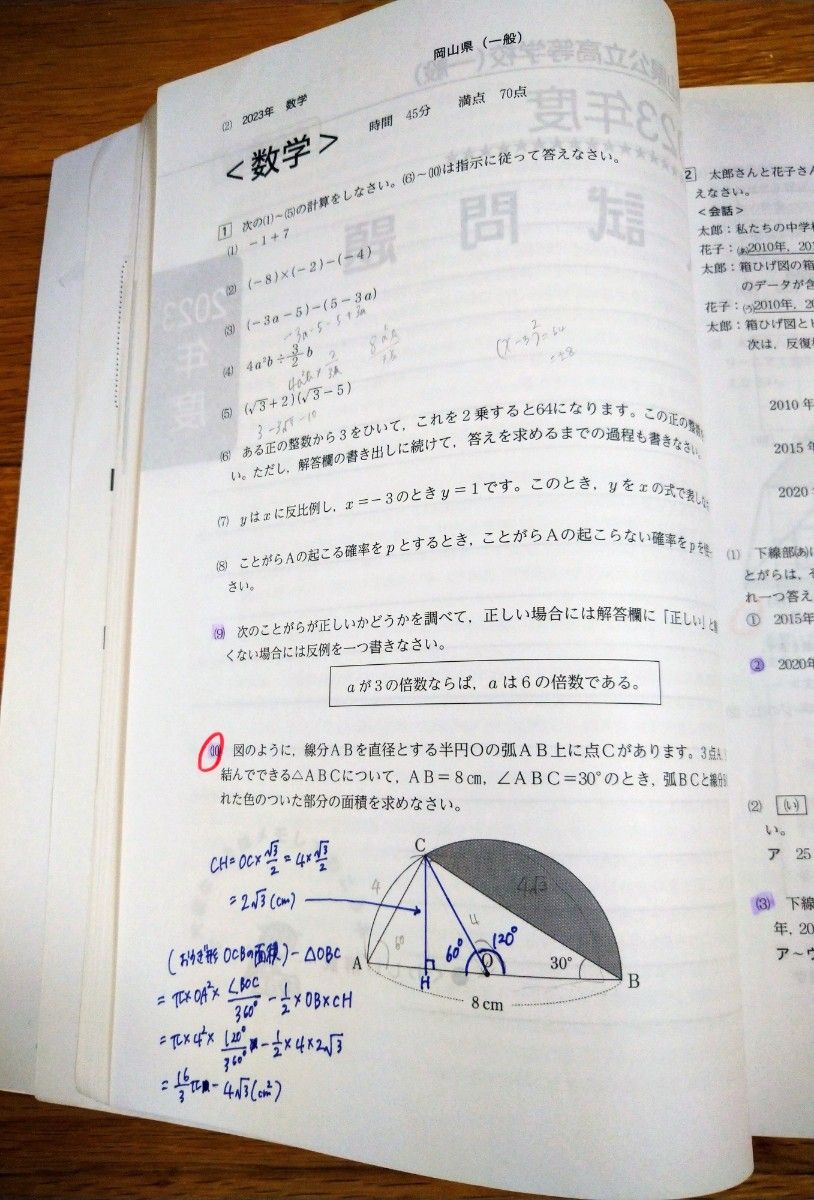 岡山県（一般）
(2) 2023年 数学
＜数学＞ 時間 45分 満点 70点
1 次の(1)～(5)の計算をしなさい。(6)～(10)は指示に従って答えなさい。
(1) －1＋7
(2) (－8)×(－2)－(－4)
(3) (－3a－5)－(5－3a)
-3a-5-5+3a
(4) 4a²b÷3/2 b
(x-3)²=64
=±8
(5) (√3＋2)(√3－5)
(6) ある正の整数から3をひいて，これを2乗すると64になります。この正の整数
い。ただし，解答欄の書き出しに続けて，答えを求めるまでの過程も書きなさい。
(7) yはxに反比例し，x＝－3のときy＝1です。このとき，yをxの式で表し
(8) ことがらAの起こる確率をpとするとき，ことがらAの起こらない確率をpを
さい。
(9) 次のことがらが正しいかどうかを調べて，正しい場合には解答欄に「正しい」と
くない場合には反例を一つ書きなさい。
aが3の倍数ならば，aは6の倍数である。
(10) 図のように，線分ABを直径とする半円Oの弧AB上に点Cがあります。3点A
結んでできる△ABCについて，AB＝8cm，∠ABC＝30°のとき，弧BCと線分
れた色のついた部分の面積を求めなさい。
CH=OC×√3/2=4×√3/2
=2√3(cm)
(おうぎ形OCBの面積)-△OBC
=π×OA²×∠BOC/360°-1/2×OB×CH
=π×4²×120°/360°-1/2×4×2√3
=16/3π-4√3(cm²)
C
4
4√3
4
60
60°
120°
A
H
O
30°
B
8cm
2 太郎さんと花子さん
えなさい。
＜会話＞
太郎：私たちの中学校
花子：(あ)2010年，201
太郎：箱ひげ図の箱
のデータが含
花子：(う)2010年，20
太郎：箱ひげ図とヒ
次は，反復横
2010年
2015年
2020
(1) 下線部(あ)に
とがらは，そ
れ一つ答え
① 2015年
② 2020年
(2) (い)
い。
ア 25
(3) 下線
年，20
ア～ウ